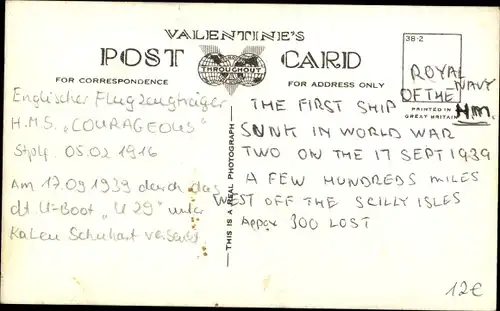 VALENTINE'S
POST CARD
THROUGHOUT
FOR CORRESPONDENCE
FOR ADDRESS ONLY
38-2
ROYAL
OF THE NAVY
PRINTED IN
GREAT BRITAIN
HM.
Englischer Flugzeugträger
H.M.S. „COURAGEOUS"
Stplg. 05.02 1916
Am 17.09 1939 durch das
dt. U-Boot „U 29" unter
KaLeu Schuhart versenkt
THIS IS A REAL PHOTOGRAPH
THE FIRST SHIP
SUNK IN WORLD WAR
TWO ON THE 17 SEPT 1939
A FEW HUNDREDS MILES
WEST OFF THE SCILLY ISLES
Appox 300 LOST
12€